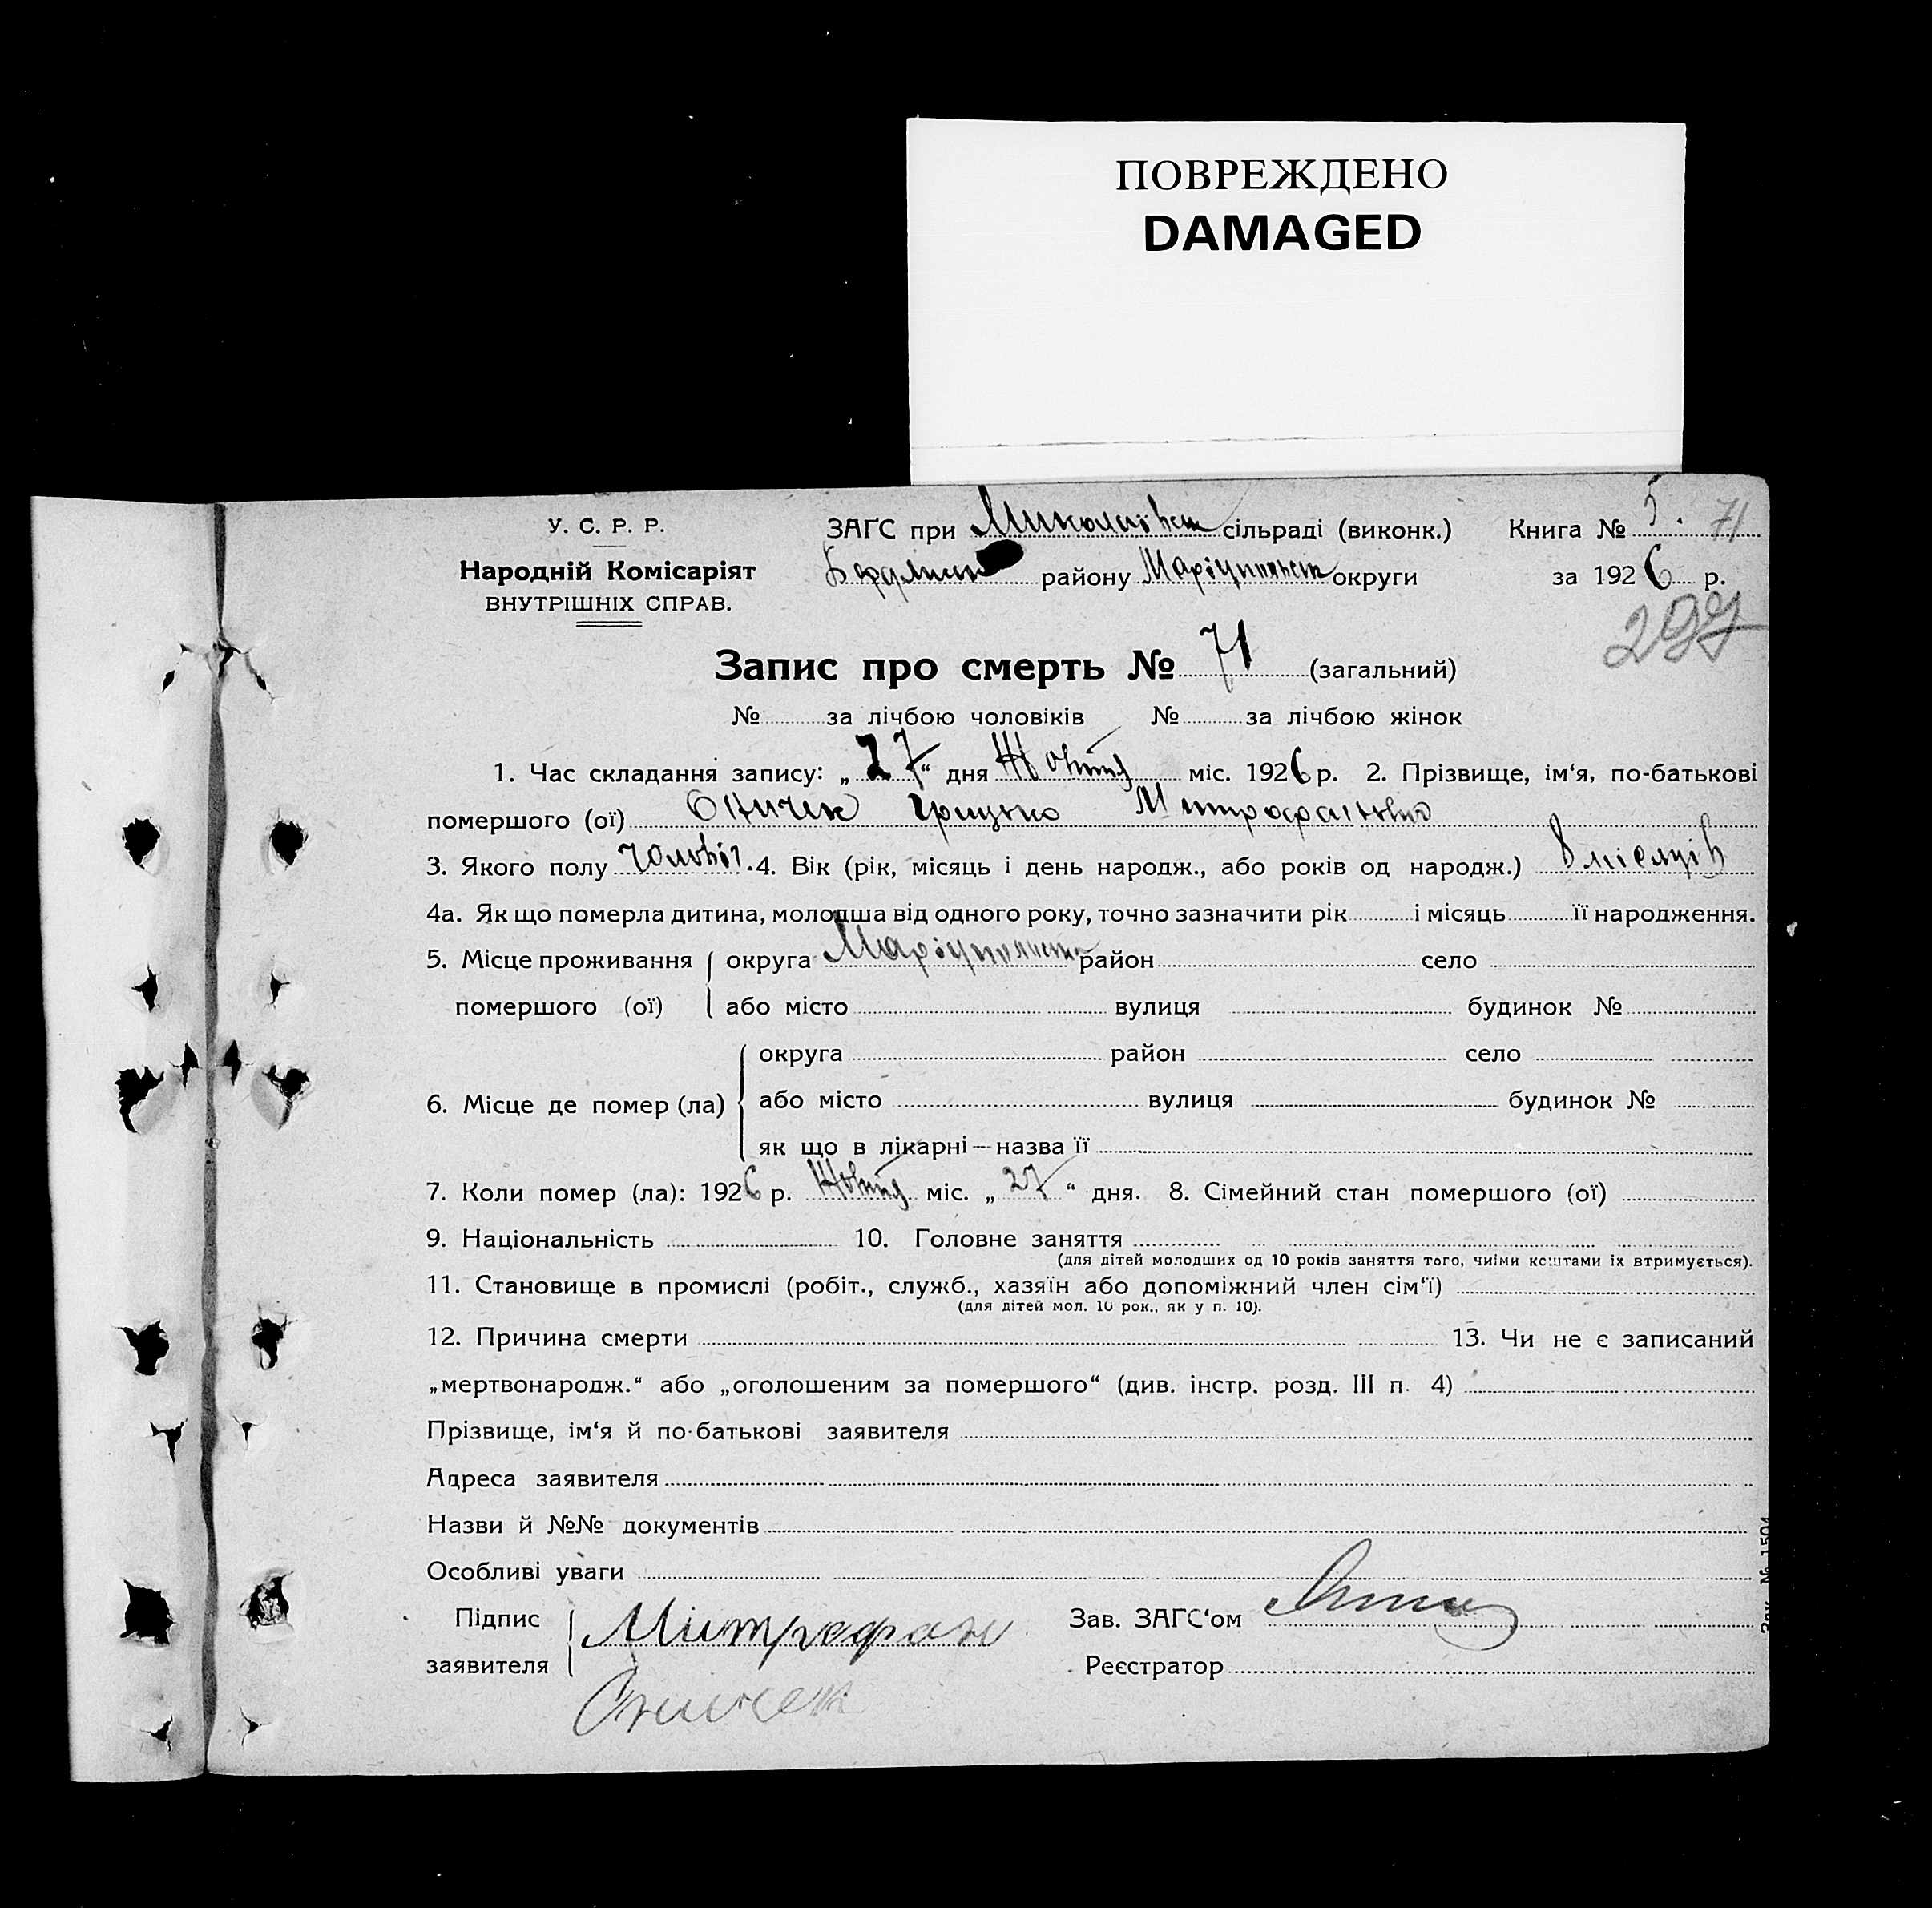 ПОВРЕЖДЕНО
DAMAGED
У. С. Р. Р.
Народній Комісаріят
ВНУТРІШНІХ СПРАВ.
ЗАГС при Миколаївськ сільраді (виконк.) Книга № 5. 71
району Маріупольськ округи за 1926 р.
299
Запис про смерть № 71 (загальний)
№ за лічбою чоловіків № за лічбою жінок
1. Час складання запису: „27“ дня Жовтня міс. 1926 р. 2. Прізвище, ім‘я, по-батькові
помершого (ої) Грицько Митрофанович
3. Якого полу чоловіч. 4. Вік (рік, місяць і день народж., або років од народж.) 8 місяців
4а. Як що померла дитина, молодша від одного року, точно зазначити рік і місяць її народження.
5. Місце проживання округа Маріупольська район село
помершого (ої) або місто вулиця будинок №
округа район село
6. Місце де помер (ла) або місто вулиця будинок №
як що в лікарні — назва її
7. Коли помер (ла): 1926 р. Жовтня міс. „27“ дня. 8. Сімейний стан помершого (ої)
9. Національність 10. Головне заняття
(для дітей молодших од 10 років заняття того, чиїми коштами їх втримується).
11. Становище в промислі (робіт., служб., хазяїн або допоміжний член сім‘ї)
(для дітей мол. 10 рок., як у п. 10).
12. Причина смерти 13. Чи не є записаний
„мертвонародж.“ або „оголошеним за помершого“ (див. інстр. розд. III п. 4)
Прізвище, ім‘я й по-батькові заявителя
Адреса заявителя
Назви й №№ документів
Особливі уваги
Підпис Митрофан Зав. ЗАГС‘ом
заявителя Реєстратор
Зак. № 1504